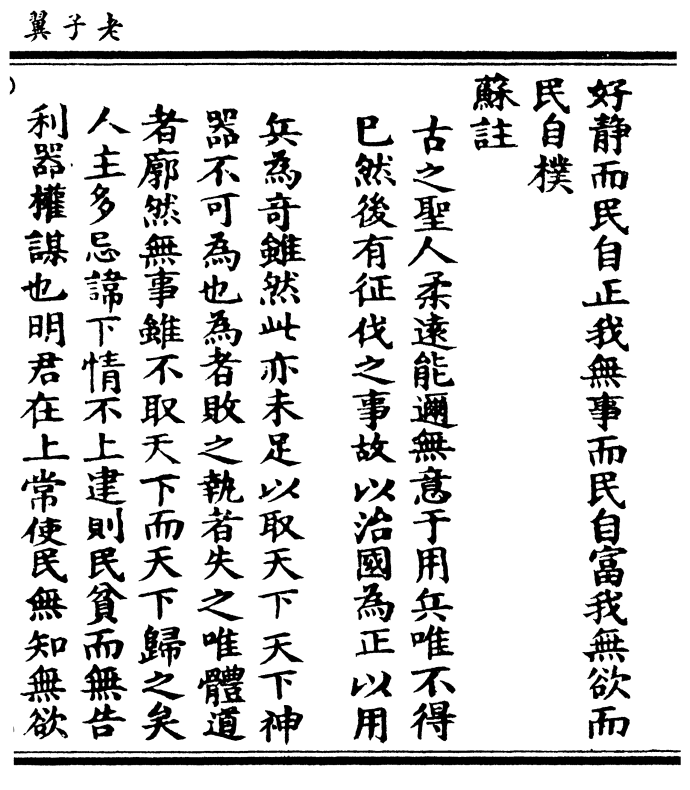 老子翼
好靜而民自正我無事而民自富我無欲而
民自樸
蘇註
古之聖人柔遠能邇無意于用兵唯不得
已然後有征伐之事故以治國為正以用
兵為奇雖然此亦未足以取天下天下神
器不可為也為者敗之執者失之唯體道
者廓然無事雖不取天下而天下歸之矣
人主多忌諱下情不上達則民貧而無告
利器權謀也明君在上常使民無知無欲